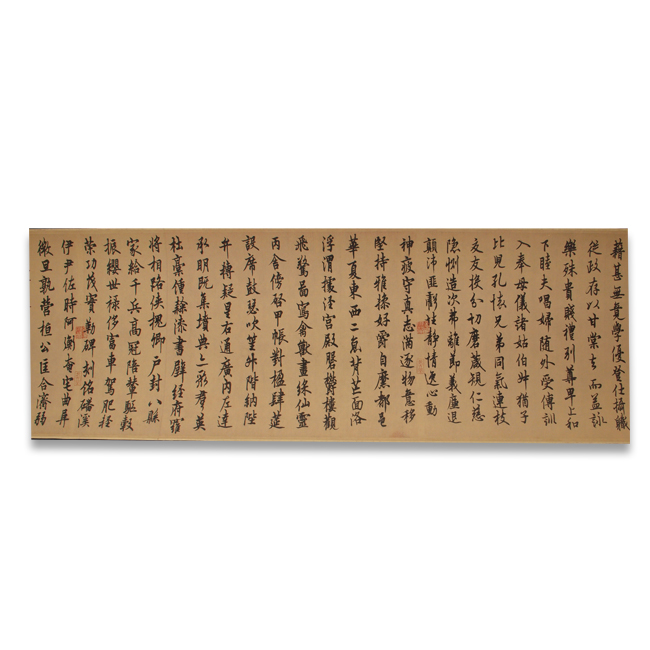 藉甚無竟學優登仕攝職
從政存以甘棠去而益詠
樂殊貴賤禮別尊卑上和
下睦夫唱婦隨外受傅訓
入奉母儀諸姑伯叔猶子
比兒孔懷兄弟同氣連枝
交友投分切磨箴規仁慈
隱惻造次弗離節義廉退
顛沛匪虧性靜情逸心動
神疲守真志滿逐物意移
堅持雅操好爵自縻都邑
華夏東西二京背芒面洛
浮渭據涇宮殿磐鬱樓觀
飛驚啚寫禽獸畫綵仙靈
丙舍傍啓甲帳對楹肆筵
設席鼓瑟吹笙升階納陛
弁轉疑星右通廣內左達
承明既集墳典亦聚群英
杜稾鍾隸漆書壁經府羅
將相路俠槐卿戶封八縣
家給千兵高冠陪輦驅轂
振纓世祿侈富車駕肥輕
策功茂實勒碑刻銘磻溪
伊尹佐時阿衡奄宅曲阜
微旦孰營桓公匡合濟弱